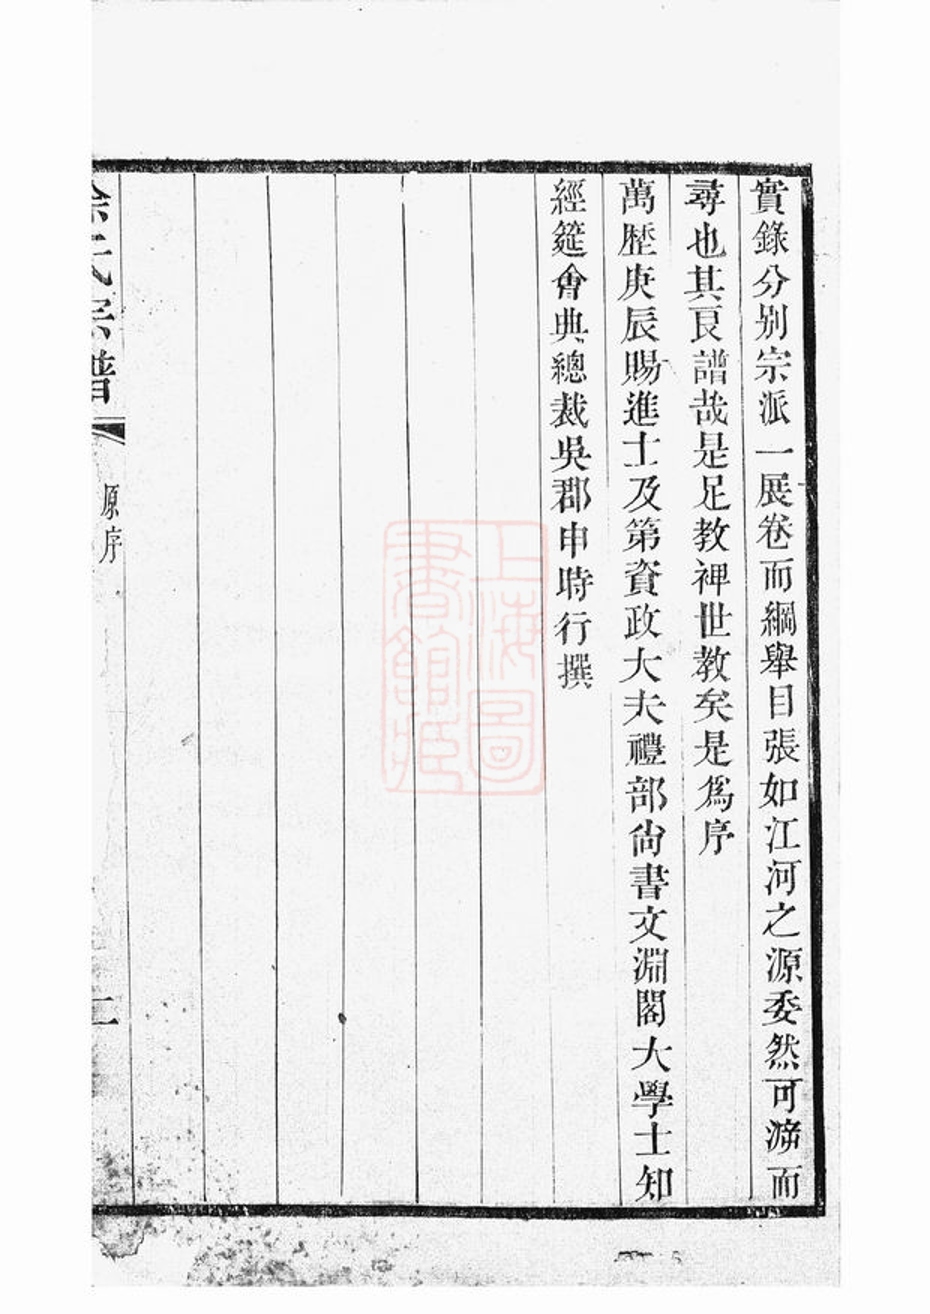 實錄分别宗派一展卷而綱舉目張如江河之源委然可㴑而
尋也其良譜哉是足教裨世教矣是爲序
萬歷庚辰賜進士及第資政大夫禮部尙書文淵閣大學士知
經筵會典總裁吳郡申時行撰
氏宗譜
原序
二
上海圖
書館藏